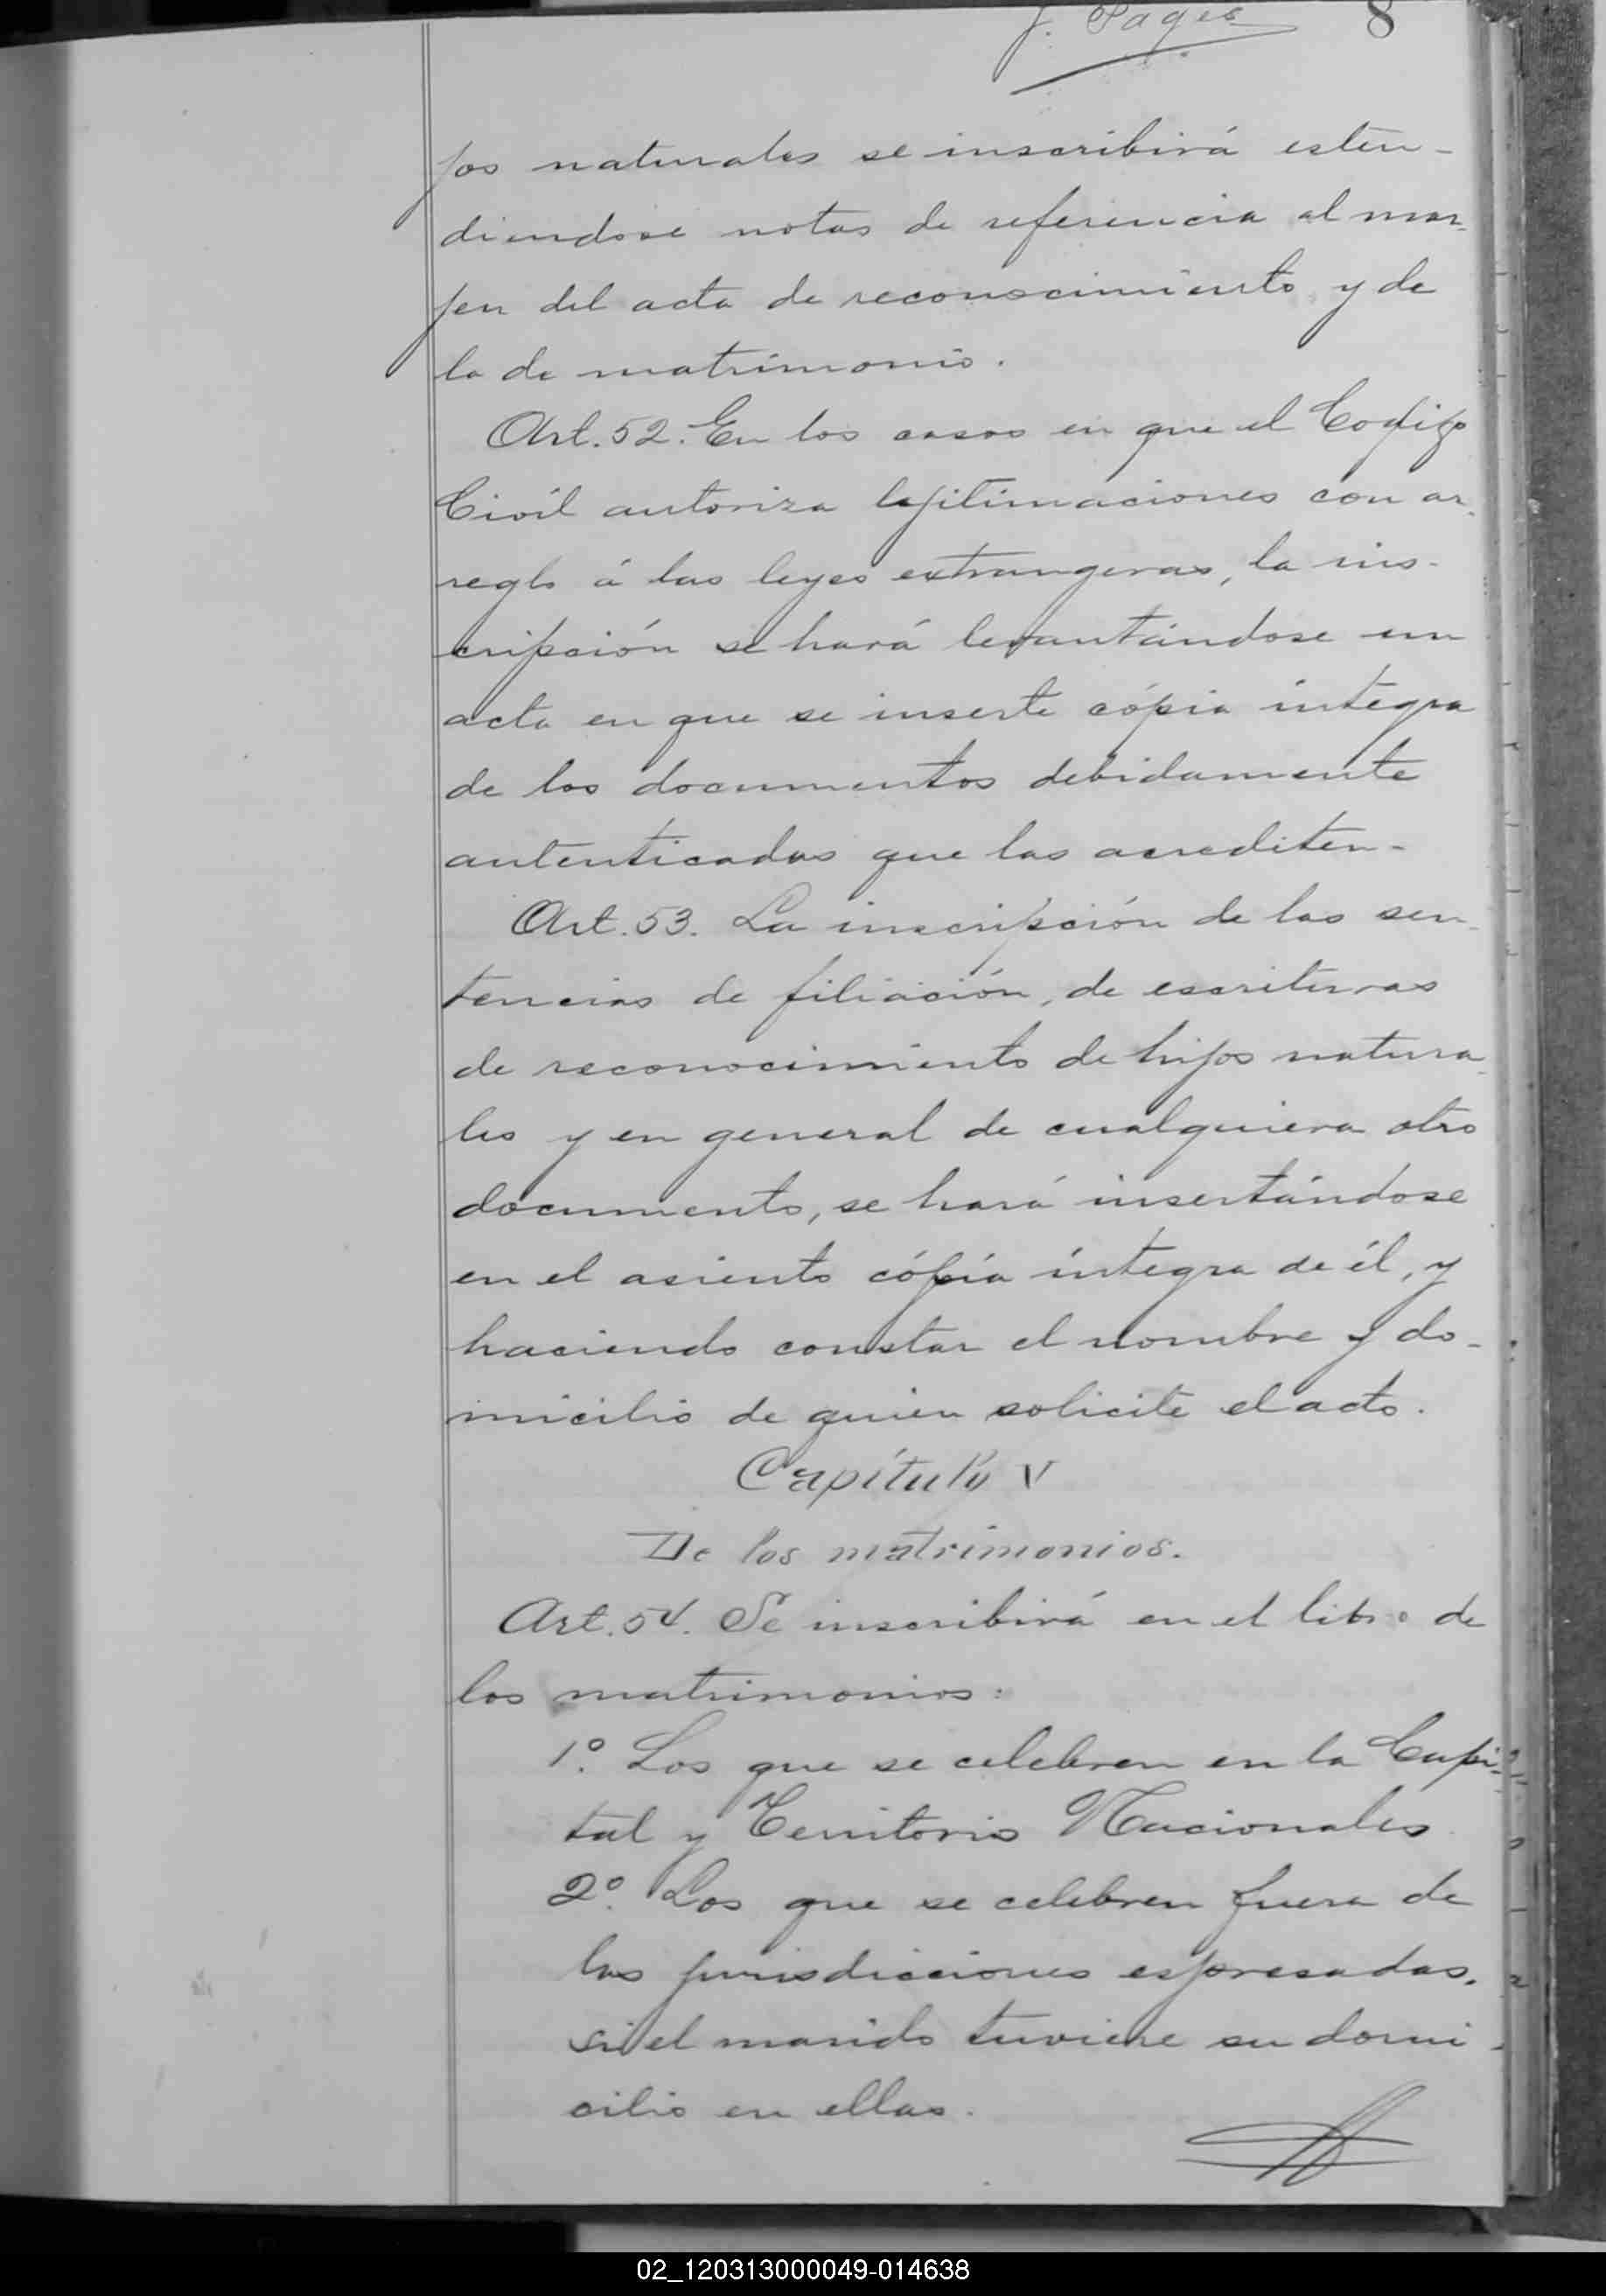 J. Pages 8
jos naturales se inscribirá esten-
diendose notas de referencia al mar-
jen del acta de reconocimiento y de
la de matrimonio.
Art. 52. En los casos en que el Codigo
Civil autoriza lejitimaciones con ar-
reglo á las leyes extrangeras, la ins-
cripción se hará levantándose un
acta en que se inserte cópia integra
de los documentos debidamente
autenticados que las acrediten.
Art. 53. La inscripción de las sen-
tencias de filiación, de escrituras
de reconocimiento de hijos natura-
les y en general de cualquiera otro
documento, se hará insertándose
en el asiento cópia íntegra de él, y
haciendo constar el nombre y do-
micilio de quien solicite el acto.
Capítulo V
De los matrimonios.
Art. 54. Se inscribirá en el libro de
los matrimonios:
1º. Los que se celebren en la Capi-
tal y Territorio Nacionales
2º. Los que se celebren fuera de
las jurisdicciones espresadas,
si el marido tuviere su domi-
cilio en ellas.
02_120313000049-014638